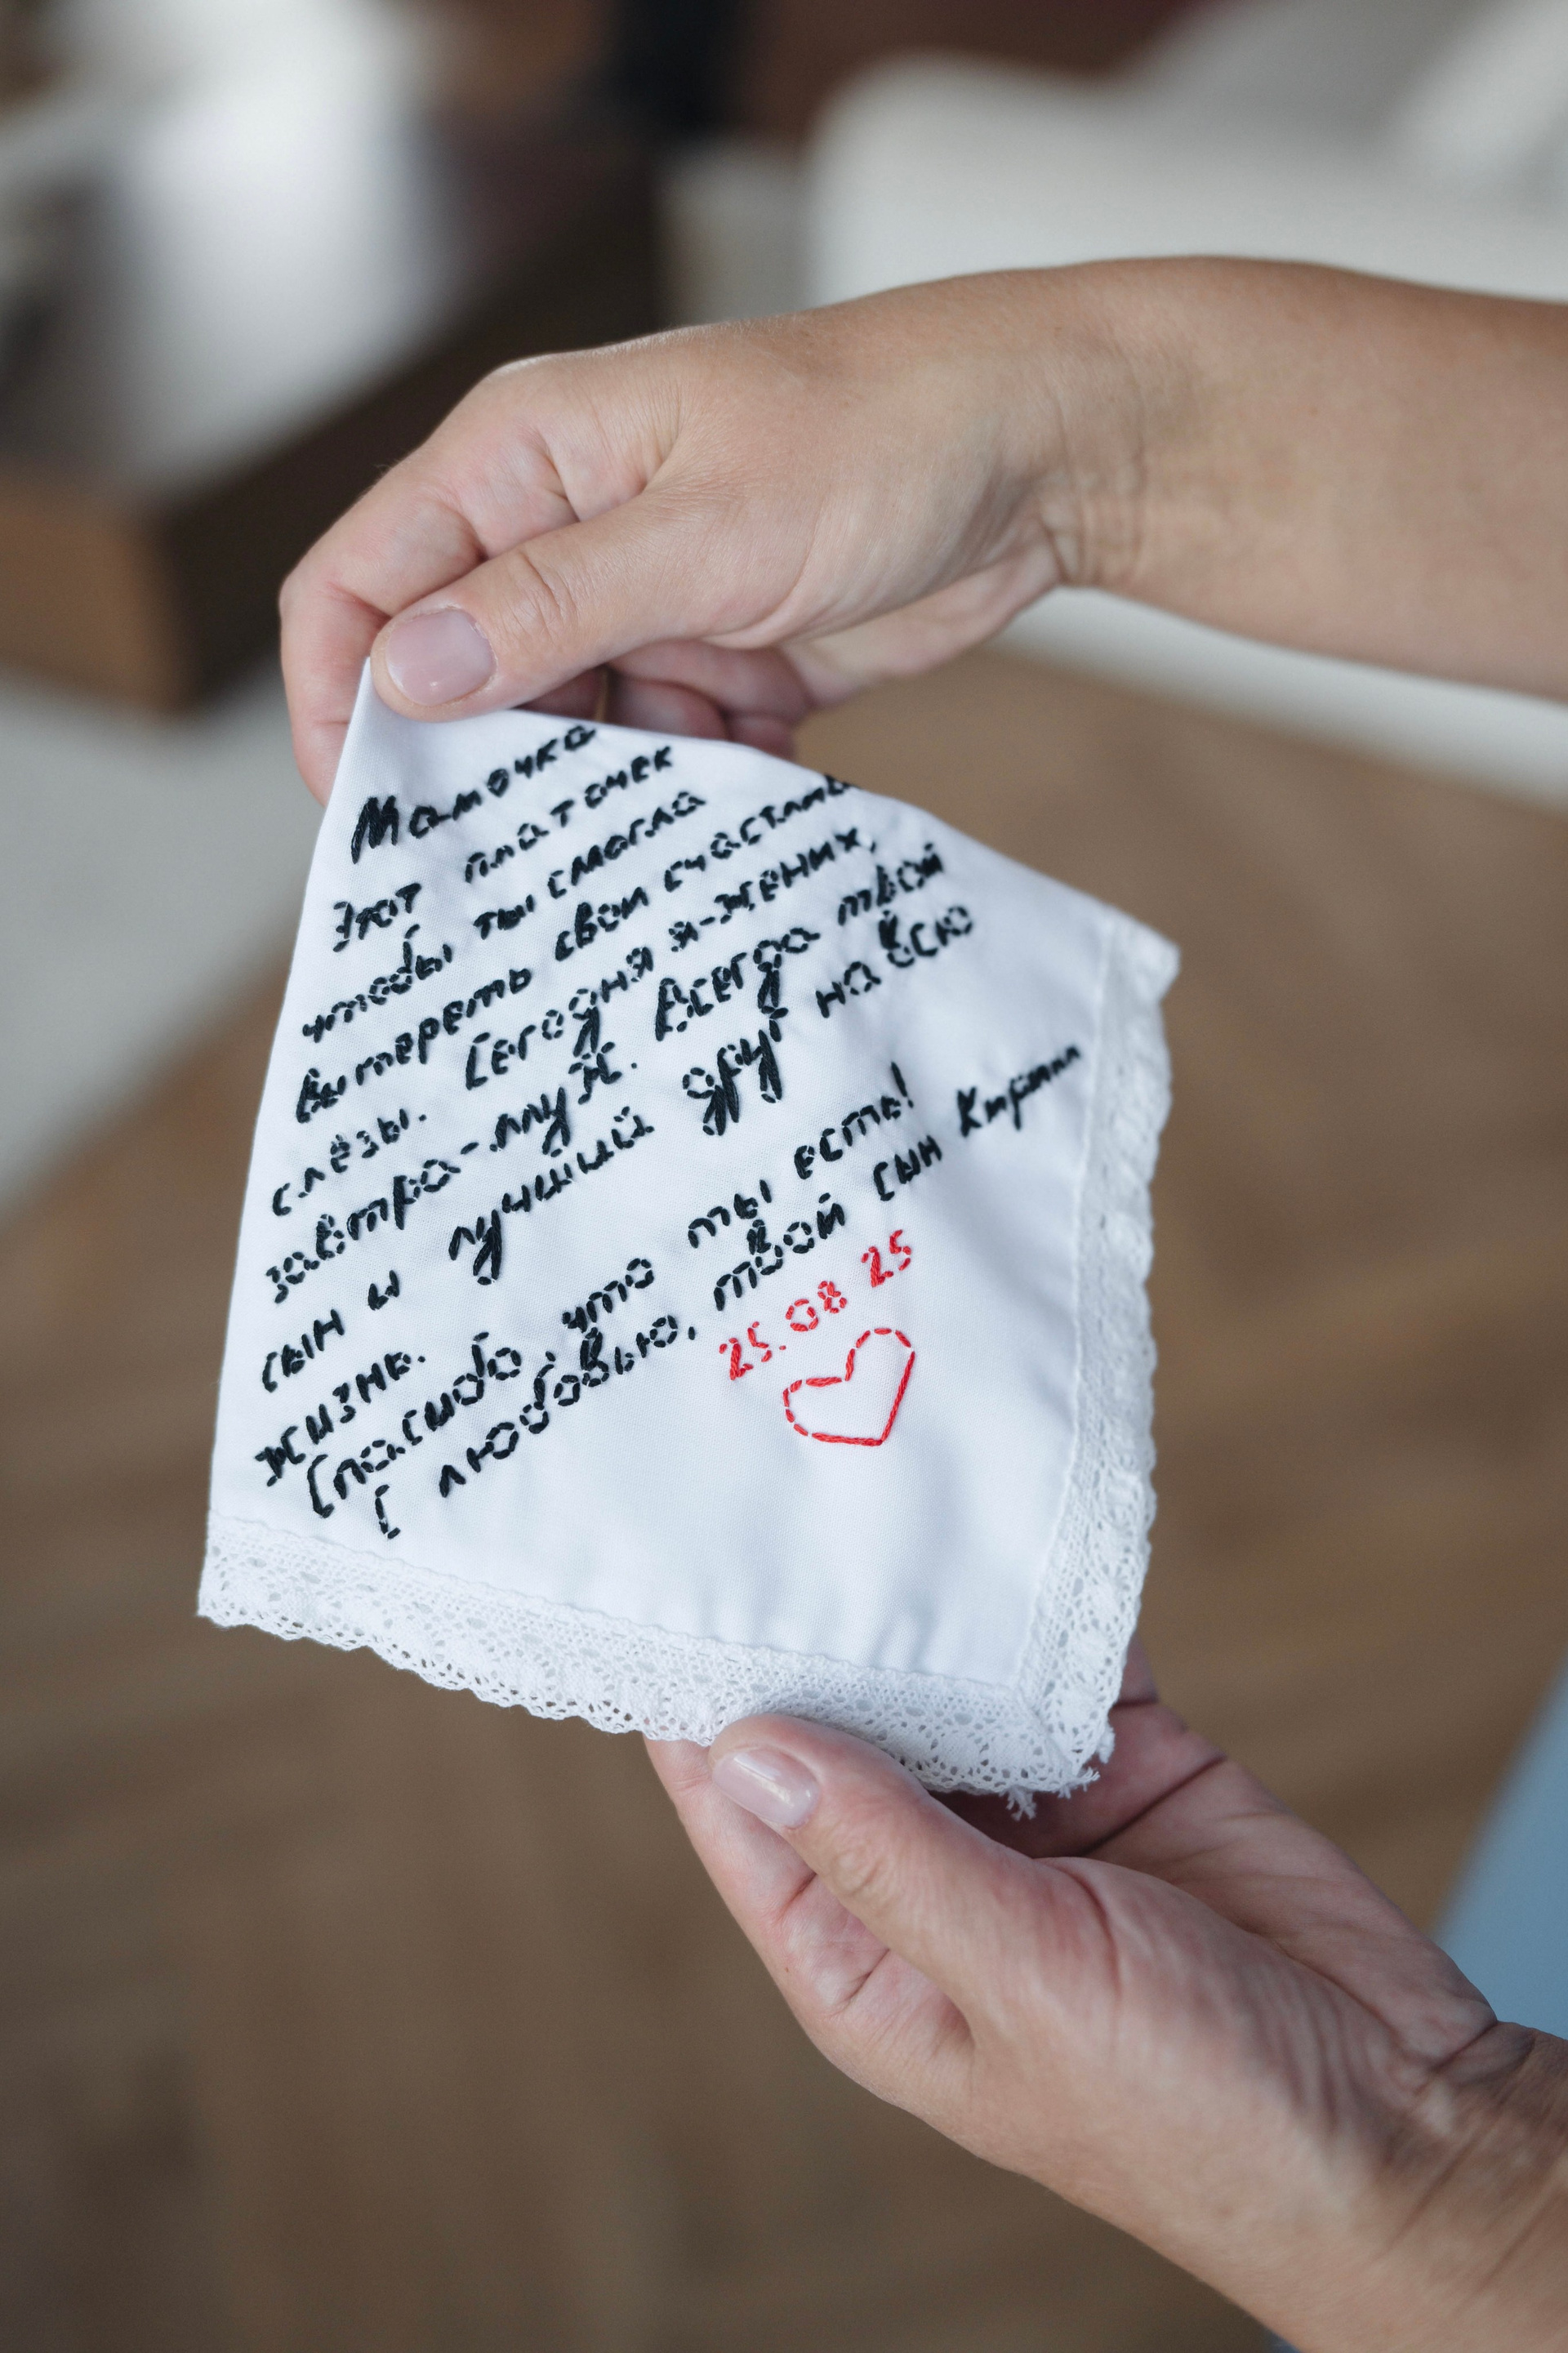 Мамочка
Этот платочек
чтобы ты смогла
вытереть свои счастливые
слёзы. Сегодня я-жених,
завтра-муж. Всегда твой
сын и лучший друг на всю
жизнь.
Спасибо, что ты есть!
С любовью, твой сын
25.08 25